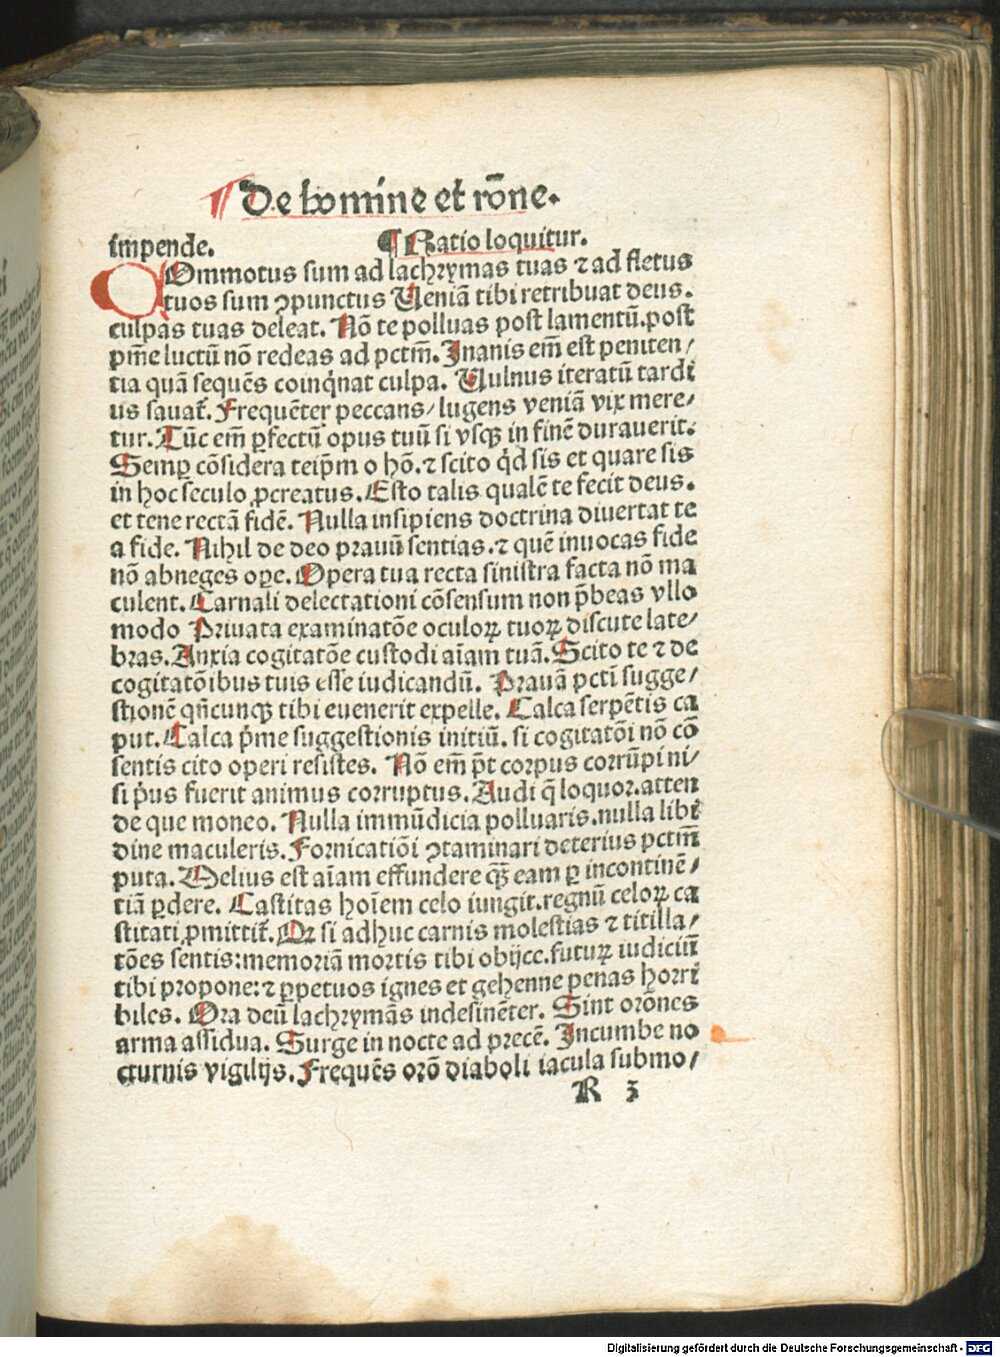 ¶ De homine et rōne.
impende. ¶ Ratio loquitur.
COmmotus sum ad lachrymas tuas ⁊ ad fletus
tuos sum ꝯpunctus Ueniā tibi retribuat deus.
culpas tuas deleat. Nō te polluas post lamentū.post
pm̄e luctū nō redeas ad pctm̄. Inanis em̄ est peniten/
tia quā sequēs coinq̇nat culpa. Uulnus iteratū tardi
us sanat̄. Frequēter peccans/lugens veniā vix mere/
tur. Tūc em̄ ꝑfectū opus tuū si vsqꝫ in finē durauerit.
Semꝑ cōsidera teip̄m o hō.⁊ scito q̇d sis et quare sis
in hoc seculo ꝓcreatus. Esto talis qualē te fecit deus.
et tene rectā fidē. Nulla insipiens doctrina diuertat te
a fide. Nihil de deo prauū sentias.⁊ quē inuocas fide
nō abneges oꝑe. Opera tua recta sinistra facta nō ma
culent. Carnali delectationi cōsensum non p̄beas vllo
modo Priuata examinatōe oculoꝝ tuoꝝ discute late-
bras. Anxia cogitatōe custodi aīam tuā. Scito te ⁊ de
cogitatōibus tuis esse iudicandū. Prauā pcti sugge/
stionē qn̄cunqꝫ tibi euenerit expelle. Calca serpētis ca
put. Calca p̄me suggestionis initiū. si cogitatōi nō cō
sentis cito operi resistes. Nō em̄ p̄t corpus corrūpi ni/
si p̄us fuerit animus corruptus. Audi q̄ loquor.atten
de que moneo. Nulla immūdicia polluaris.nulla libi
dine maculeris. Fornicatiōi ꝯtaminari deterius pctm̄
puta. Melius est aīam effundere qꝫ̄ eam ꝑ incontinē/
tiā ꝑdere. Castitas hoīem celo iungit.regnū celoꝝ ca
stitati ꝓmittit̄. Qr si adhuc carnis molestias ⁊ titilla/
tōes sentis:memoriā mortis tibi obijce.futuꝝ iudiciū
tibi propone:⁊ ꝑpetuos ignes et gehenne penas horri
biles. Ora deū lachrymās indesinēter. Sint orōnes
arma assidua. Surge in nocte ad precē. Incumbe no
cturnis vigilijs. Frequēs orō diaboli iacula submo/
R 3
Digitalisierung gefördert durch die Deutsche Forschungsgemeinschaft - DFG